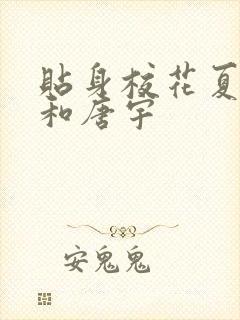 贴身校花夏
和唐宇
安鬼鬼